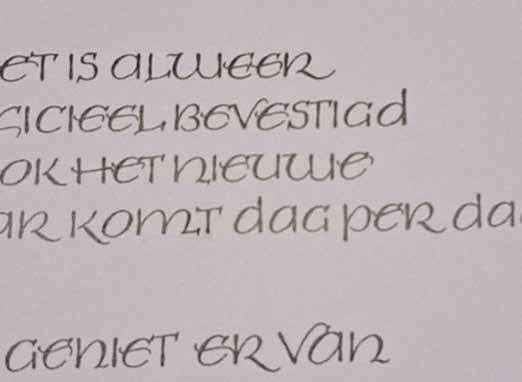 ET IS ALWEER
FICIEEL BEVESTIGD
OK HET NIEUWE
AR KOMT dAG PER dA
GENIET ER VAN